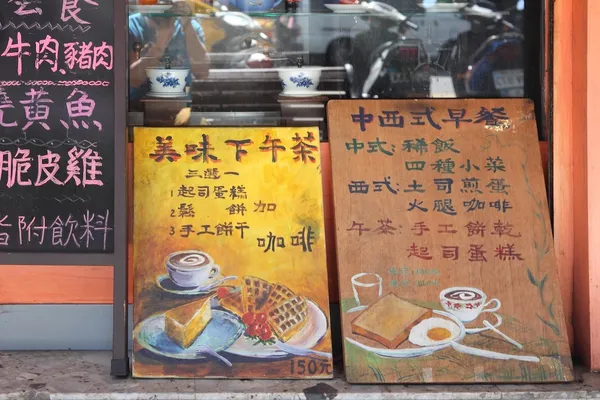 食
牛肉 豬肉
黃魚
脆皮雞
皆附飲料
美味下午茶
三選一
1 起司蛋糕
2 鬆餅 加
3 手工餅干 咖啡
150元
中西式早餐
中式：稀飯
四種小菜
西式：土司煎蛋
火腿咖啡
午茶：手工餅乾
起司蛋糕